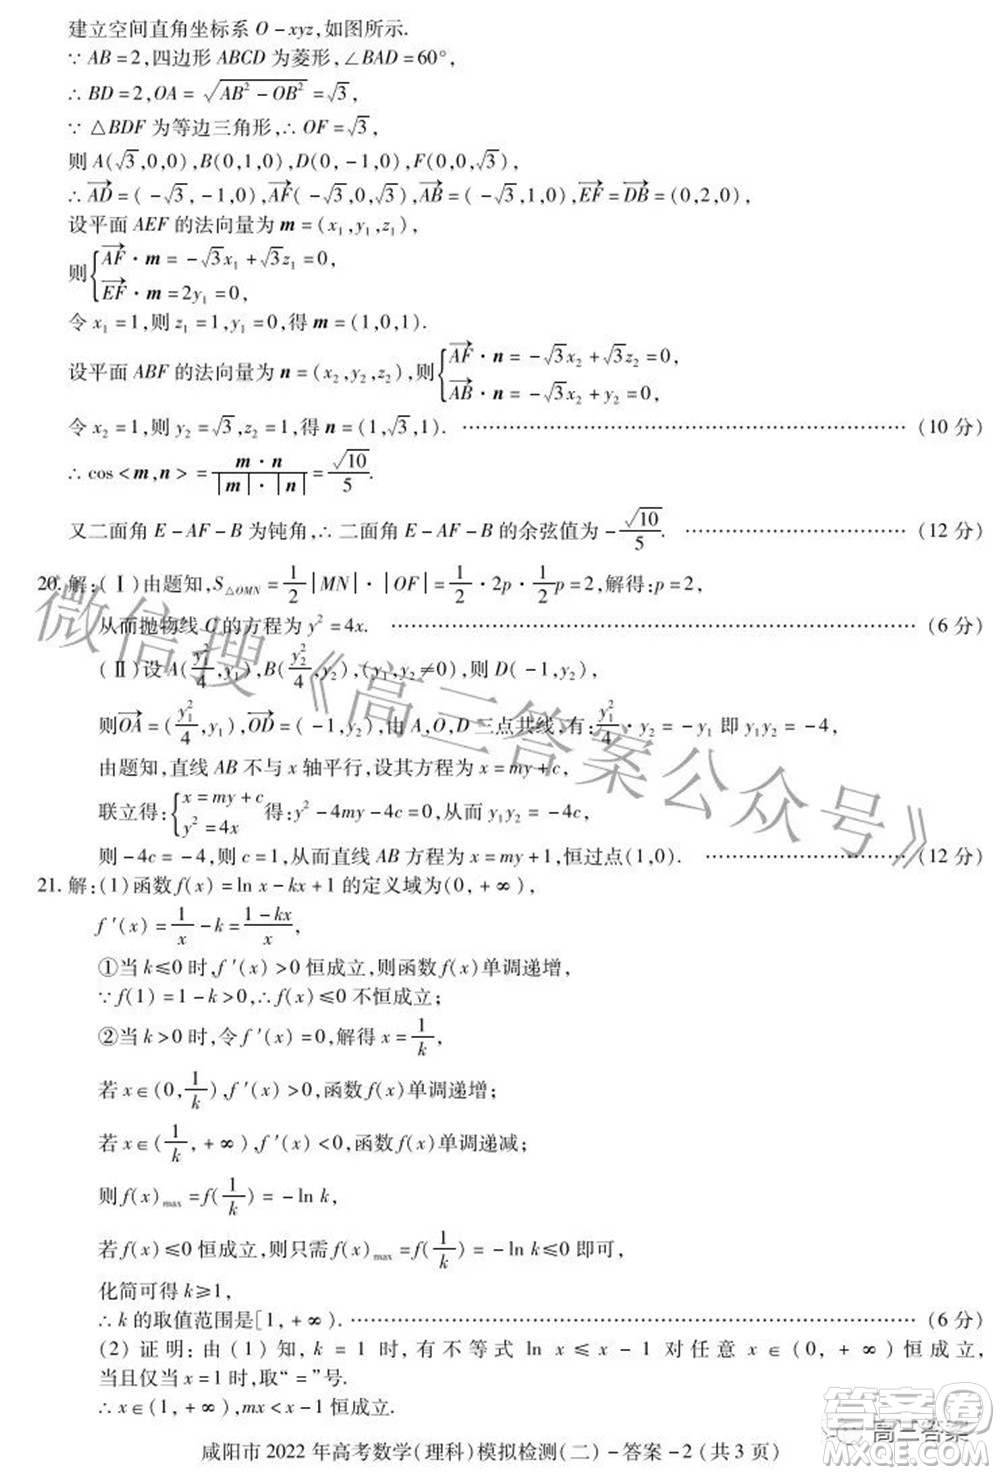 建立空间直角坐标系 O-xyz,如图所示.
∵ AB=2,四边形 ABCD 为菱形,∠BAD=60°,
∴ BD=2,OA=√(AB²-OB²)=√3,
∵ △BDF 为等边三角形,∴ OF=√3,
则 A(√3,0,0),B(0,1,0),D(0,-1,0),F(0,0,√3),
∴ AD→=(-√3,-1,0),AF→(-√3,0,√3),AB→=(-√3,1,0),EF→=DB→=(0,2,0),
设平面 AEF 的法向量为 m=(x₁,y₁,z₁),
则{AF→·m=-√3x₁+√3z₁=0,
EF→·m=2y₁=0,
令 x₁=1,则 z₁=1,y₁=0,得 m=(1,0,1).
设平面 ABF 的法向量为 n=(x₂,y₂,z₂),则{AF→·n=-√3x₂+√3z₂=0,
AB→·n=-√3x₂+y₂=0,
令 x₂=1,则 y₂=√3,z₂=1,得 n=(1,√3,1). …… (10 分)
∴ cos<m,n>=m·n/|m|·|n|=√10/5.
又二面角 E-AF-B 为钝角,∴ 二面角 E-AF-B 的余弦值为-√10/5. …… (12 分)
20. 解:(Ⅰ)由题知,S△OMN=1/2|MN|·|OF|=1/2·2p·1/2p=2,解得:p=2,
从而抛物线 C 的方程为 y²=4x. …… (6 分)
(Ⅱ)设 A(y₁²/4,y₁),B(y₂²/4,y₂),(y₁,y₂≠0),则 D(-1,y₂),
则OA→=(y₁²/4,y₁),OD→=(-1,y₂),由 A,O,D 三点共线,有:y₁²/4·y₂=-y₁ 即 y₁y₂=-4,
由题知,直线 AB 不与 x 轴平行,设其方程为 x=my+c,
联立得:{x=my+c
y²=4x 得:y²-4my-4c=0,从而 y₁y₂=-4c,
则-4c=-4,则 c=1,从而直线 AB 方程为 x=my+1,恒过点(1,0). …… (12 分)
21. 解:(1)函数 f(x)=ln x-kx+1 的定义域为(0,+∞),
f′(x)=1/x-k=(1-kx)/x,
①当 k≤0 时,f′(x)>0 恒成立,则函数 f(x)单调递增,
∵f(1)=1-k>0,∴f(x)≤0 不恒成立;
②当 k>0 时,令 f′(x)=0,解得 x=1/k,
若 x∈(0,1/k),f′(x)>0,函数 f(x)单调递增;
若 x∈(1/k,+∞),f′(x)<0,函数 f(x)单调递减;
则 f(x)max=f(1/k)=-ln k,
若 f(x)≤0 恒成立,则只需 f(x)max=f(1/k)=-ln k≤0 即可,
化简可得 k≥1,
∴ k 的取值范围是[1,+∞). …… (6 分)
(2) 证明:由(1)知,k=1 时,有不等式 ln x≤x-1 对任意 x∈(0,+∞)恒成立,
当且仅当 x=1 时,取“=”号.
∴ x∈(1,+∞),lnx<x-1 恒成立.
咸阳市 2022 年高考数学(理科)模拟检测(二)-答案-2(共3页)
微信搜《高三答案公众号》
高三答案
答案圈